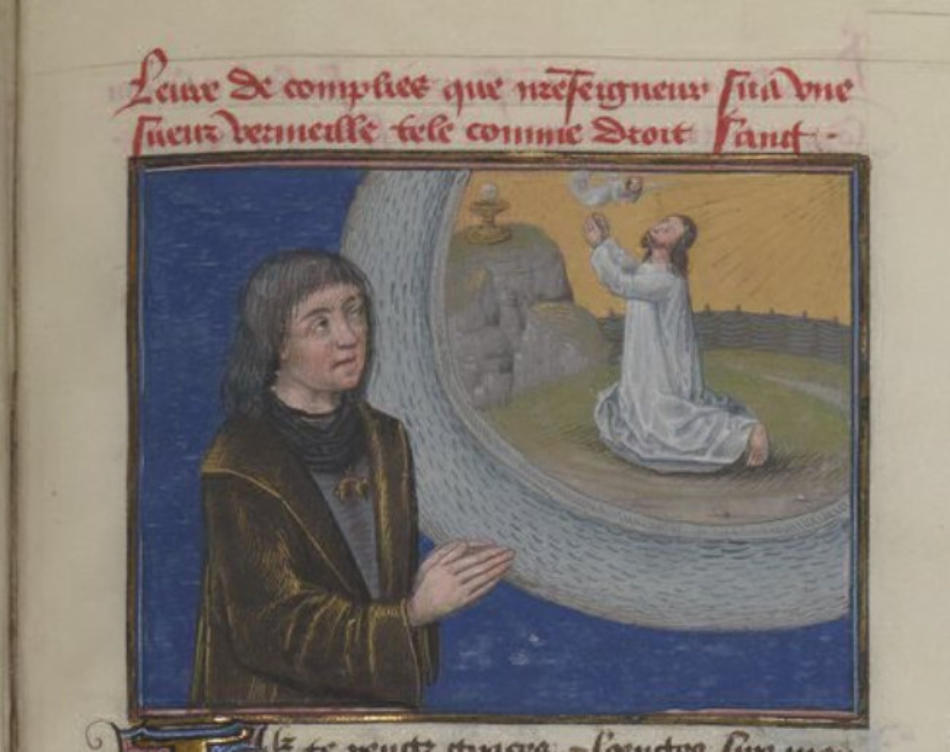 Leure de complies que nr̄e seigneur sua vne
sueur vermeille tele comme droit sanct
te rentz graces